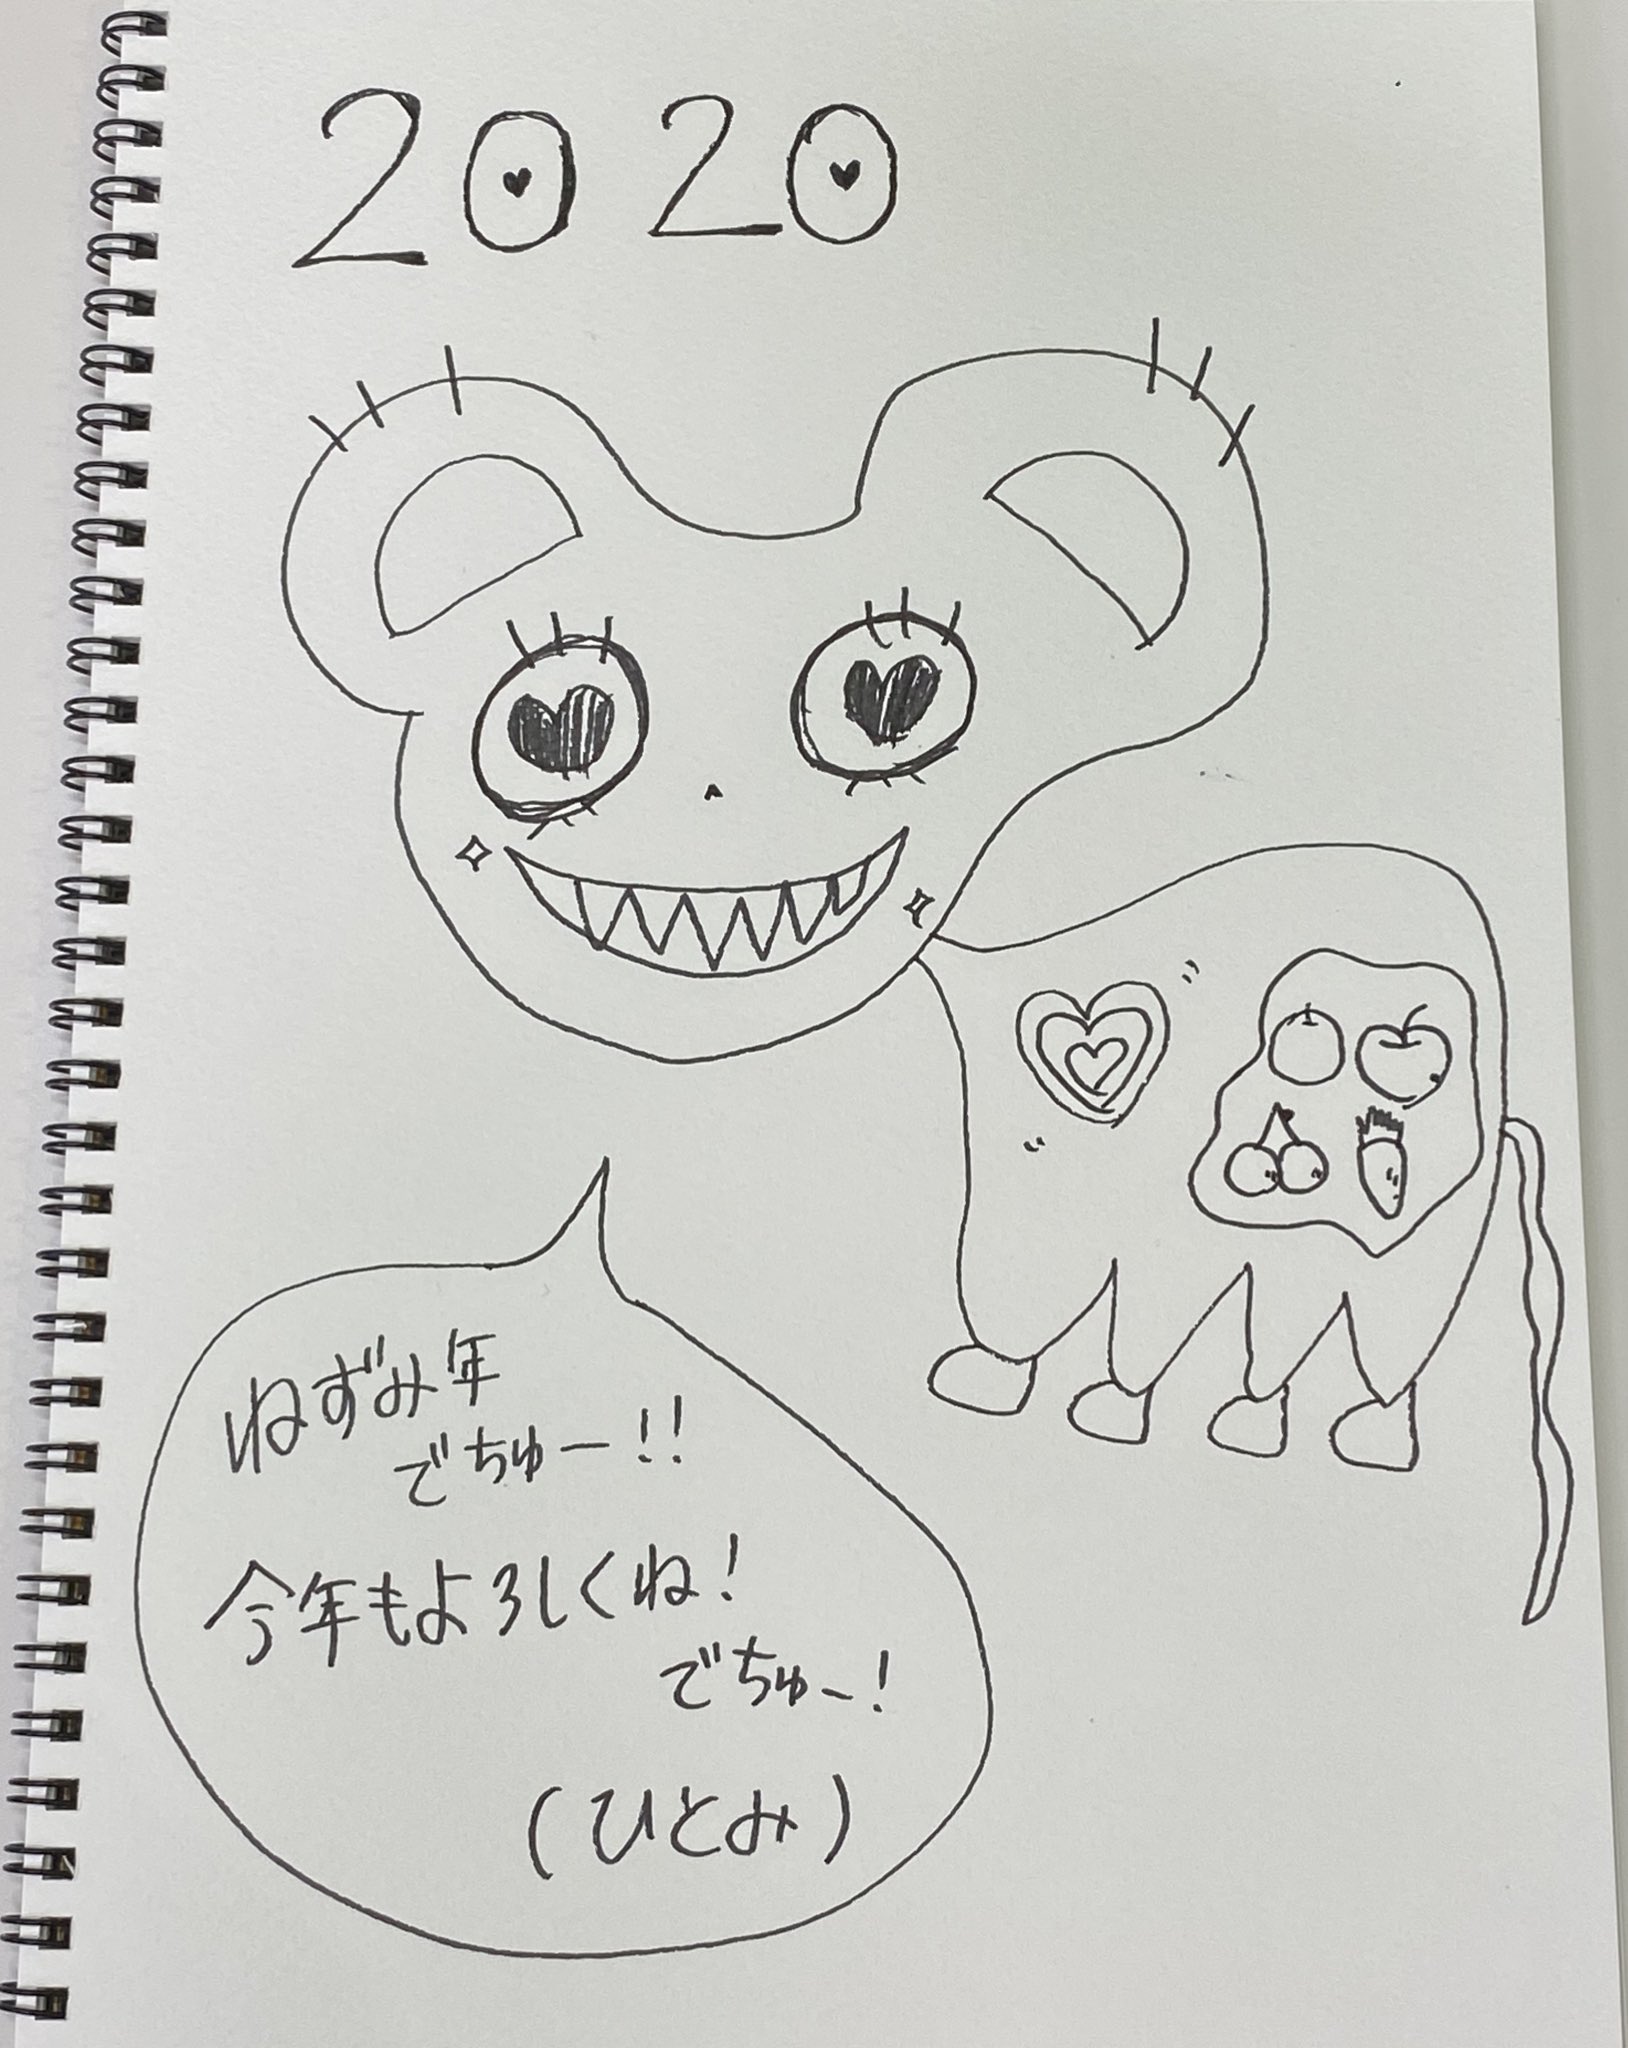 2020
ねずみ年
でちゅー!!
今年もよろしくね!
でちゅー!
(ひとみ)